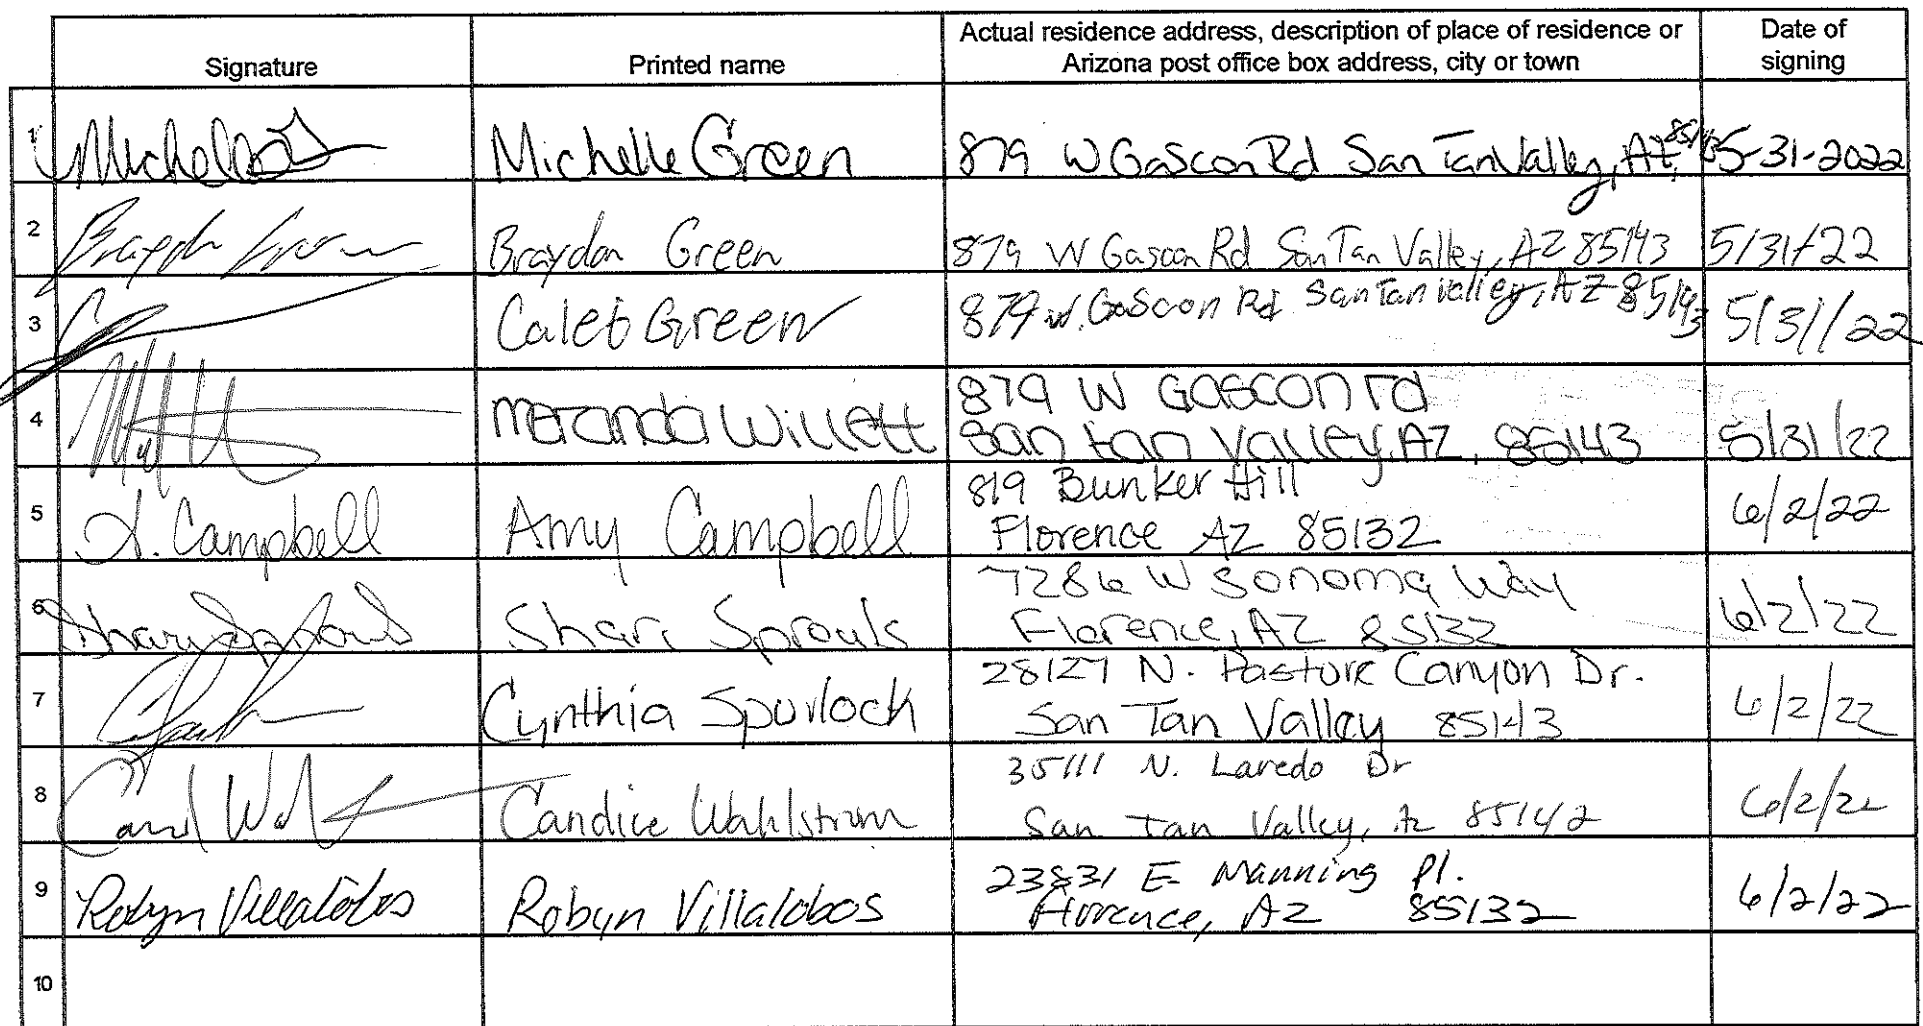 Signature
Printed name
Actual residence address, description of place of residence or
Arizona post office box address, city or town
Date of
signing
1 Michelle Green 879 W Gascon Rd San Tan Valley, AZ 85143 5-31-2022
2 Braydon Green 879 W Gascon Rd San Tan Valley, AZ 85143 5/31/22
3 Caleb Green 879 W. Gascon Rd. San Tan Valley, AZ 85143 5/31/22
4 Willett 879 W Gascon rd
San tan Valley, AZ, 85143 5/31/22
5 A. Campbell Amy Campbell 819 Bunker Hill
Florence AZ 85132 6/2/22
6 Shari Sprouls Shari Sprouls 7286 W Sonoma Way
Florence, AZ 85132 6/2/22
7 Cynthia Spurlock 28127 N. Pasture Canyon Dr.
San Tan Valley 85143 6/2/22
8 Candice Wahlstrom 35111 N. Laredo Dr
San Tan Valley, Az 85142 6/2/22
9 Robyn Villalobos Robyn Villalobos 23831 E. Manning Pl.
Florence, AZ 85132 6/2/22
10